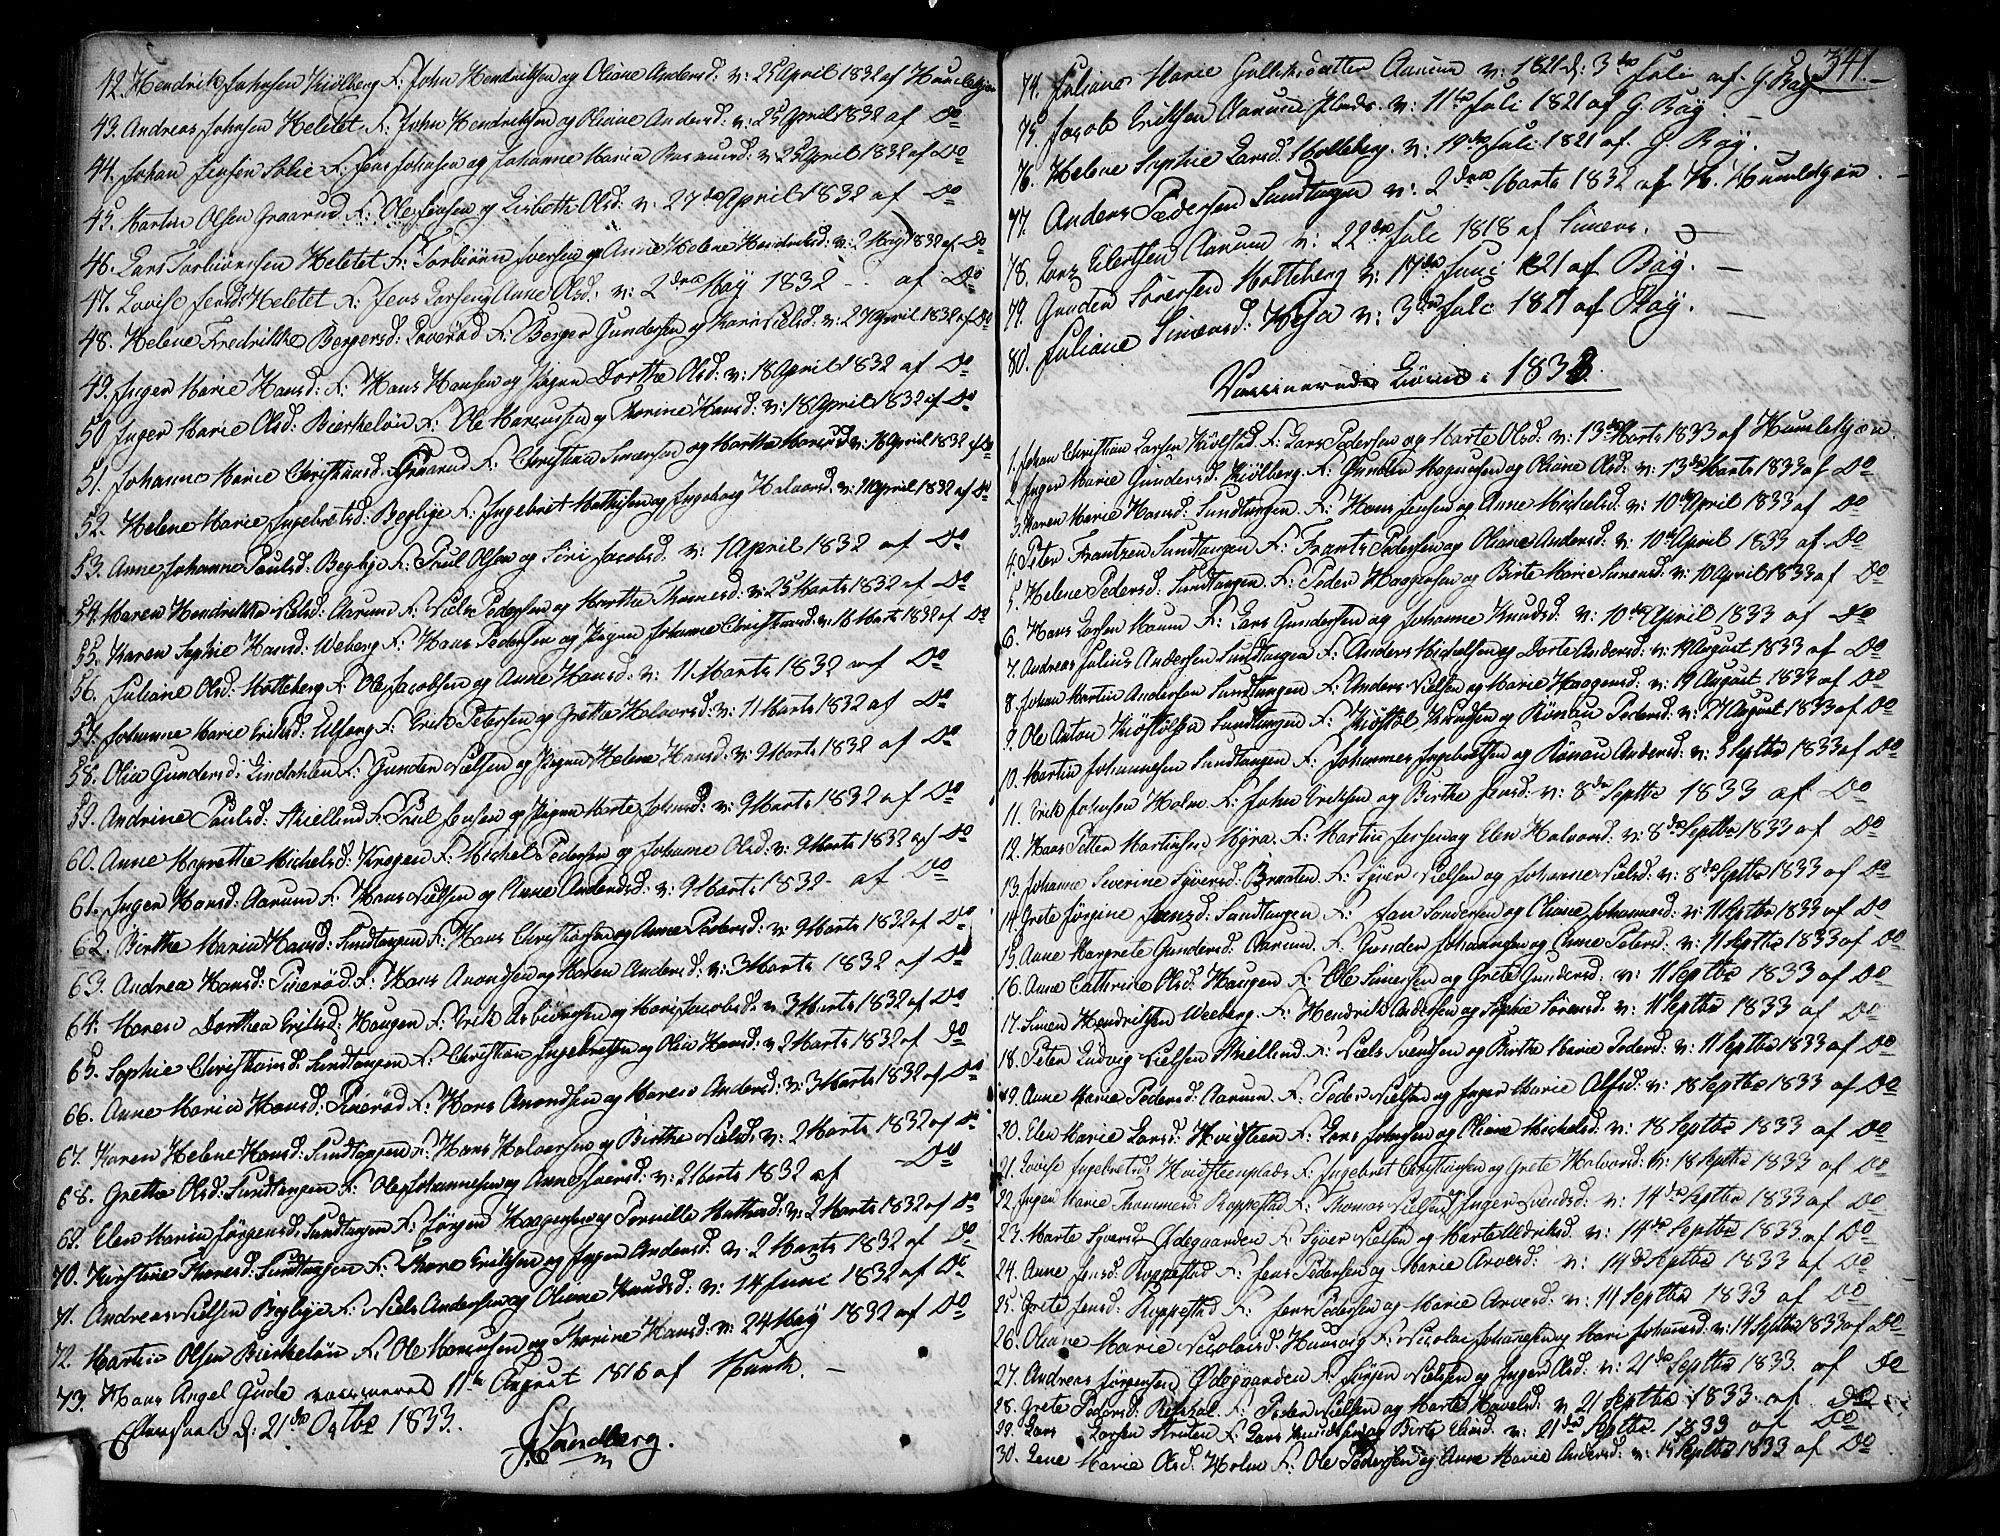 42. Hendrik Johnsen Kiölberg F: John Hendriksen og Oliane Andersd: v: 25 April 1832 af Humlekjær
43. Andreas Johnsen Heletet F: John Hendriksen og Oliane Andersd: v: 25 April 1832 af Do
44. Johan Jensen Solie F: Jens Johnsen og Johanne Maria Rasmusd: v: 25 April 1832 af Do
45. Martin Olsen Graarud F: Ole Jensen og Lisbeth Olsd: v: 27de April 1832 af Do
46. Lars Torbiörnsen Heletet F: Torbiörn Iversen og Anne Helene Hendriksd: v: 2 May 1832 af Do
47. Lovise Jensd: Heletet F: Jens Larsen og Anne Olsd: v: 2den May 1832 - - af Do
48. Helene Fredrikke Bergersd: F: Berger Gundersen og Karin Nielsd: v: 27 April 1832 af Do
49. Inger Marie Hansd: F: Hans Hansen og Ingen Dorthe Olsd: v: 18 April 1832 af Do
50 Inger Marie Olsd: Bierkelön F: Ole Marcussen og Thorine Hansd: v: 18 April 1832 af Do
51. Johanne Marie Christiansd: Graarud F: Christian Simensen og Marthe v: 18 April 1832 af Do
52. Helene Marie Ingebretsd: Beglye F: Ingebret Mathisen og Ingeborg Halvorsd: v: April 1832 af Do
53. Anne Johanne Paulsd: Beglye F: Paul Olsen og Siri Jacobsd: v: 1 April 1832 af Do
54. Maren Hendrikke Nielsd: Aarum F: Niels Pedersen og Marthe Thomesd: v: 25 Marts 1832 af Do
55. Karen Sophie Hansd: Weberg F: Hans Pedersen og Ingen Johanne Christiansd: v: 16 Marts 1832 af Do
56. Juliane Olsd: Holteberg F: Ole Jacobsen og Anne Hansd: v: 11 Marts 1832 af Do
57. Johanne Marie Eriksd: Ulfeng F: Erik Petersen og Grethe Halvorsd: v: 11 Marts 1832 af Do
58. Olia Gundersd: Lindahlen F: Gunder Nielsen og Ingen Helene Hansd: v: 9 Marts 1832 af Do
59. Andrine Paulsd: Skiellind F: Paul Jensen og Ingen Marte Johnsd: v: 9 Marts 1832 af Do
60. Anne Magrethe Michelsd: Krogen F: Michel Pedersen og Johanne Olsd: v: 9 Marts 1832 af Do
61. Inger Hansd: Aarum F: Hans Nielsen og Anne Andersd: v: 9 Marts 1832 - af Do
62. Birthe Maria Hansd: Sundtangen F: Hans Christiansen og Anne Pedersd: v: 9 Marts 1832 af Do
63. Andrea Hansd: F: Hans Anondsen og Maren Andersd: v: 3 Marts 1832 af Do
64. Maren Dorthea Eriksd: Haugen F: Erik Asbiörnsen og Mari Jacobsd: v: 3 Marts 1832 af Do
65. Sophie Christiansd: Sundtangen F: Christian Ingebretsen og Olia Hansd: v: 2 Marts 1832 af Do
66. Anne Maria Hansd: F: Hans Anondsen og Maren Andersd: v: 3 Marts 1832 af Do
67. Karen Helene Hansd: Sundtangen F: Hans Halvorsen og Birthe Nielsd: v: 2 Marts 1832 af Do
68. Grethe Olsd: Sundtangen F: Ole Johannesen og Anne Iversd: v: 2 Marts 1832 af Do
69. Elen Maria Jörgensd: Sundtangen F: Jörgen Haagensen og Pernille v: 2 Marts 1832 af Do
70. Kirstine Thoresd: Sundtangen F: Thore Eriksen og Ingen Andersd: v: 2 Marts 1832 af Do
71. Andreas Nielsen Beglye F: Niels Andersen og Oliane Knudsd: v: 14 Juni 1832 af Do
72. Martin Olsen Bierkelön F: Ole Marcusen og Thorine Hansd: v: 24 May 1832 af Do
73. Hans Angel Gude vaccineret 11te August 1816 af Munk. -
d: 21de Octbr 1833.
Sandberg.
341.
74. Juliane Marie Gulliksdatter Aarum v: 1821 d: 3de Juli af G. Bay
75. Jacob Eriksen Aarum v: 11te Juli 1821 af G. Bay. -
76. Helene Sophie Larsd: Holteberg v: 19de Juli 1821 af G. Bay.
77. Anders Pedersen Sundtangen v: 2den Marts 1832 af H. Humlekjær. -
78. Lars Eilertsen Aarum v: 22de Juli 1818 af Simers. -
79. Gunder Sörensen Holteberg v: 17de Juni 1821 af Bay. -
80. Juliane Simensd: v: 3die Juli 1821 af Bay. -
Vaccinerede Börn i 1833.
1. Johan Christian Larsen Kiölstad F: Lars Pedersen og Marte Olsd: v: 13de Marts 1833 af Humlekjær.
2. Inger Marie Gundersd: Kiölberg F: Gunder Magnusen og Oliane Olsd: v: 13de Marts 1833 af Do
3. Karen Marie Hansd: Sundtangen F: Hans Jensen og Anne Michelsd: v: 10de April 1833 af Do
4. Peter Frantzen Sundtangen F: Frants Pedersen og Oliane Andersd: v: 10de April 1833 af Do
5. Helene Pedersd: Sundtangen F: Peder Haagensen og Birte Marie Simensd: v: 10 April 1833 af Do
6. Hans Larsen Haum F: Lars Gundersen og Johanne Knudsd: v: 10de April 1833 af Do
7. Andreas Julius Andersen Sundtangen F: Anders Michelsen og Dorte Andersd: v: 19 August 1833 af Do
8. Johan Martin Andersen Sundtangen F: Anders Nielsen og Marie Haagensd: v: 19 August 1833 af Do
9. Ole Anton Kiöstolsen Sundtangen F: Kiöstol Knudsen og Rönau Pedersd: v: 27 August 1833 af Do
10. Martin Johannesen Sundtangen F: Johannes Ingebretsen og Rönau Andersd: v: 5 Septbr 1833 af Do
11. Erik Johnsen Holm F: John Eriksen og Birthe Jensd: v: 8de Septbr 1833 af Do
12. Hans Petter Martinsen Myra F: Martin Jensen og Elen Halvorsd: v: 8de Septbr 1833 af Do
13. Johanne Severine Syversd: Braaten F: Syver Nielsen og Johanne Nielsd: v: 8de Septbr 1833 af Do
14. Grete Jörgine Jansd: Sundtangen F: Jan Sandersen og Oliane Johannesd: v: 11 Septbr 1833 af Do
15. Anne Margrete Gundersd: Aarum F: Gunder Johannesen og Anne Petersd: v: 11 Septbr 1833 af Do
16. Anne Cathrine Olsd: Haugen F: Ole Simensen og Grete Gundersd: v: 11 Septbr 1833 af Do
17. Simen Hendriksen Weeberg F: Hendrik Andersen og Sophia Sörensd: v: 11 Septbr 1833 af Do
18. Peter Ludvig Nielsen Skiellind F: Niels Svendsen og Birthe Marie Pedersd: v: 11 Septbr 1833 af Do
19. Anne Marie Pedersd: Aarum F: Peder Nielsen og Inger Marie Alfsd: v: 18 Septbr 1833 af Do
20. Elen Marie Larsd: Hvidsteen F: Lars Johnsen og Oliane Michelsd: v: 18 Septbr 1833 af Do
21. Lovise Ingebretsd: Hvidsteenplads F: Ingebret Christiansen og Grete Halvorsd: v: 18 Septbr 1833 af Do
22. Ingen Marie Thommesd: Roppestad F: Thomas Nielsen Inger Svendsd: v: 14de Septbr 1833 af Do
23. Marte Syversd Ödegaarden F: Syver Nielsen og Marte Uldriksd: v: 14de Septbr 1833 af Do
24. Anne Jensd: Roppestad F: Jens Pedersen og Marie Arvesd: v: 14de Septbr 1833 af Do
25. Grete Jensd: Roppestad F: Jens Pedersen og Marie Arvesd: v: 14 Septbr 1833 af Do
26. Oliane Marie Nicolaisd: Huusvig F: Nicolai Johannesen og Mari Johannesd: v: 14 Septbr 1833 af Do
27. Andreas Jörgensen Ödegaarden F: Jörgen Nielsen og Ingen Olsd: v: 21de Septbr 1833. af Do
28. Grete Pedersd: F: Peder Nielsen og Marte Havelsd: v: 21 Septbr 1833 af Do
29. Lars Larsen F: Lars Knudsen og Birte Eliasd: v: 21de Septbr 1833 af Do
30. Lene Marie Olsd: Holm F: Ole Pedersen og Anne Marie Andersd: v: 15 Septbr 1833 af Do